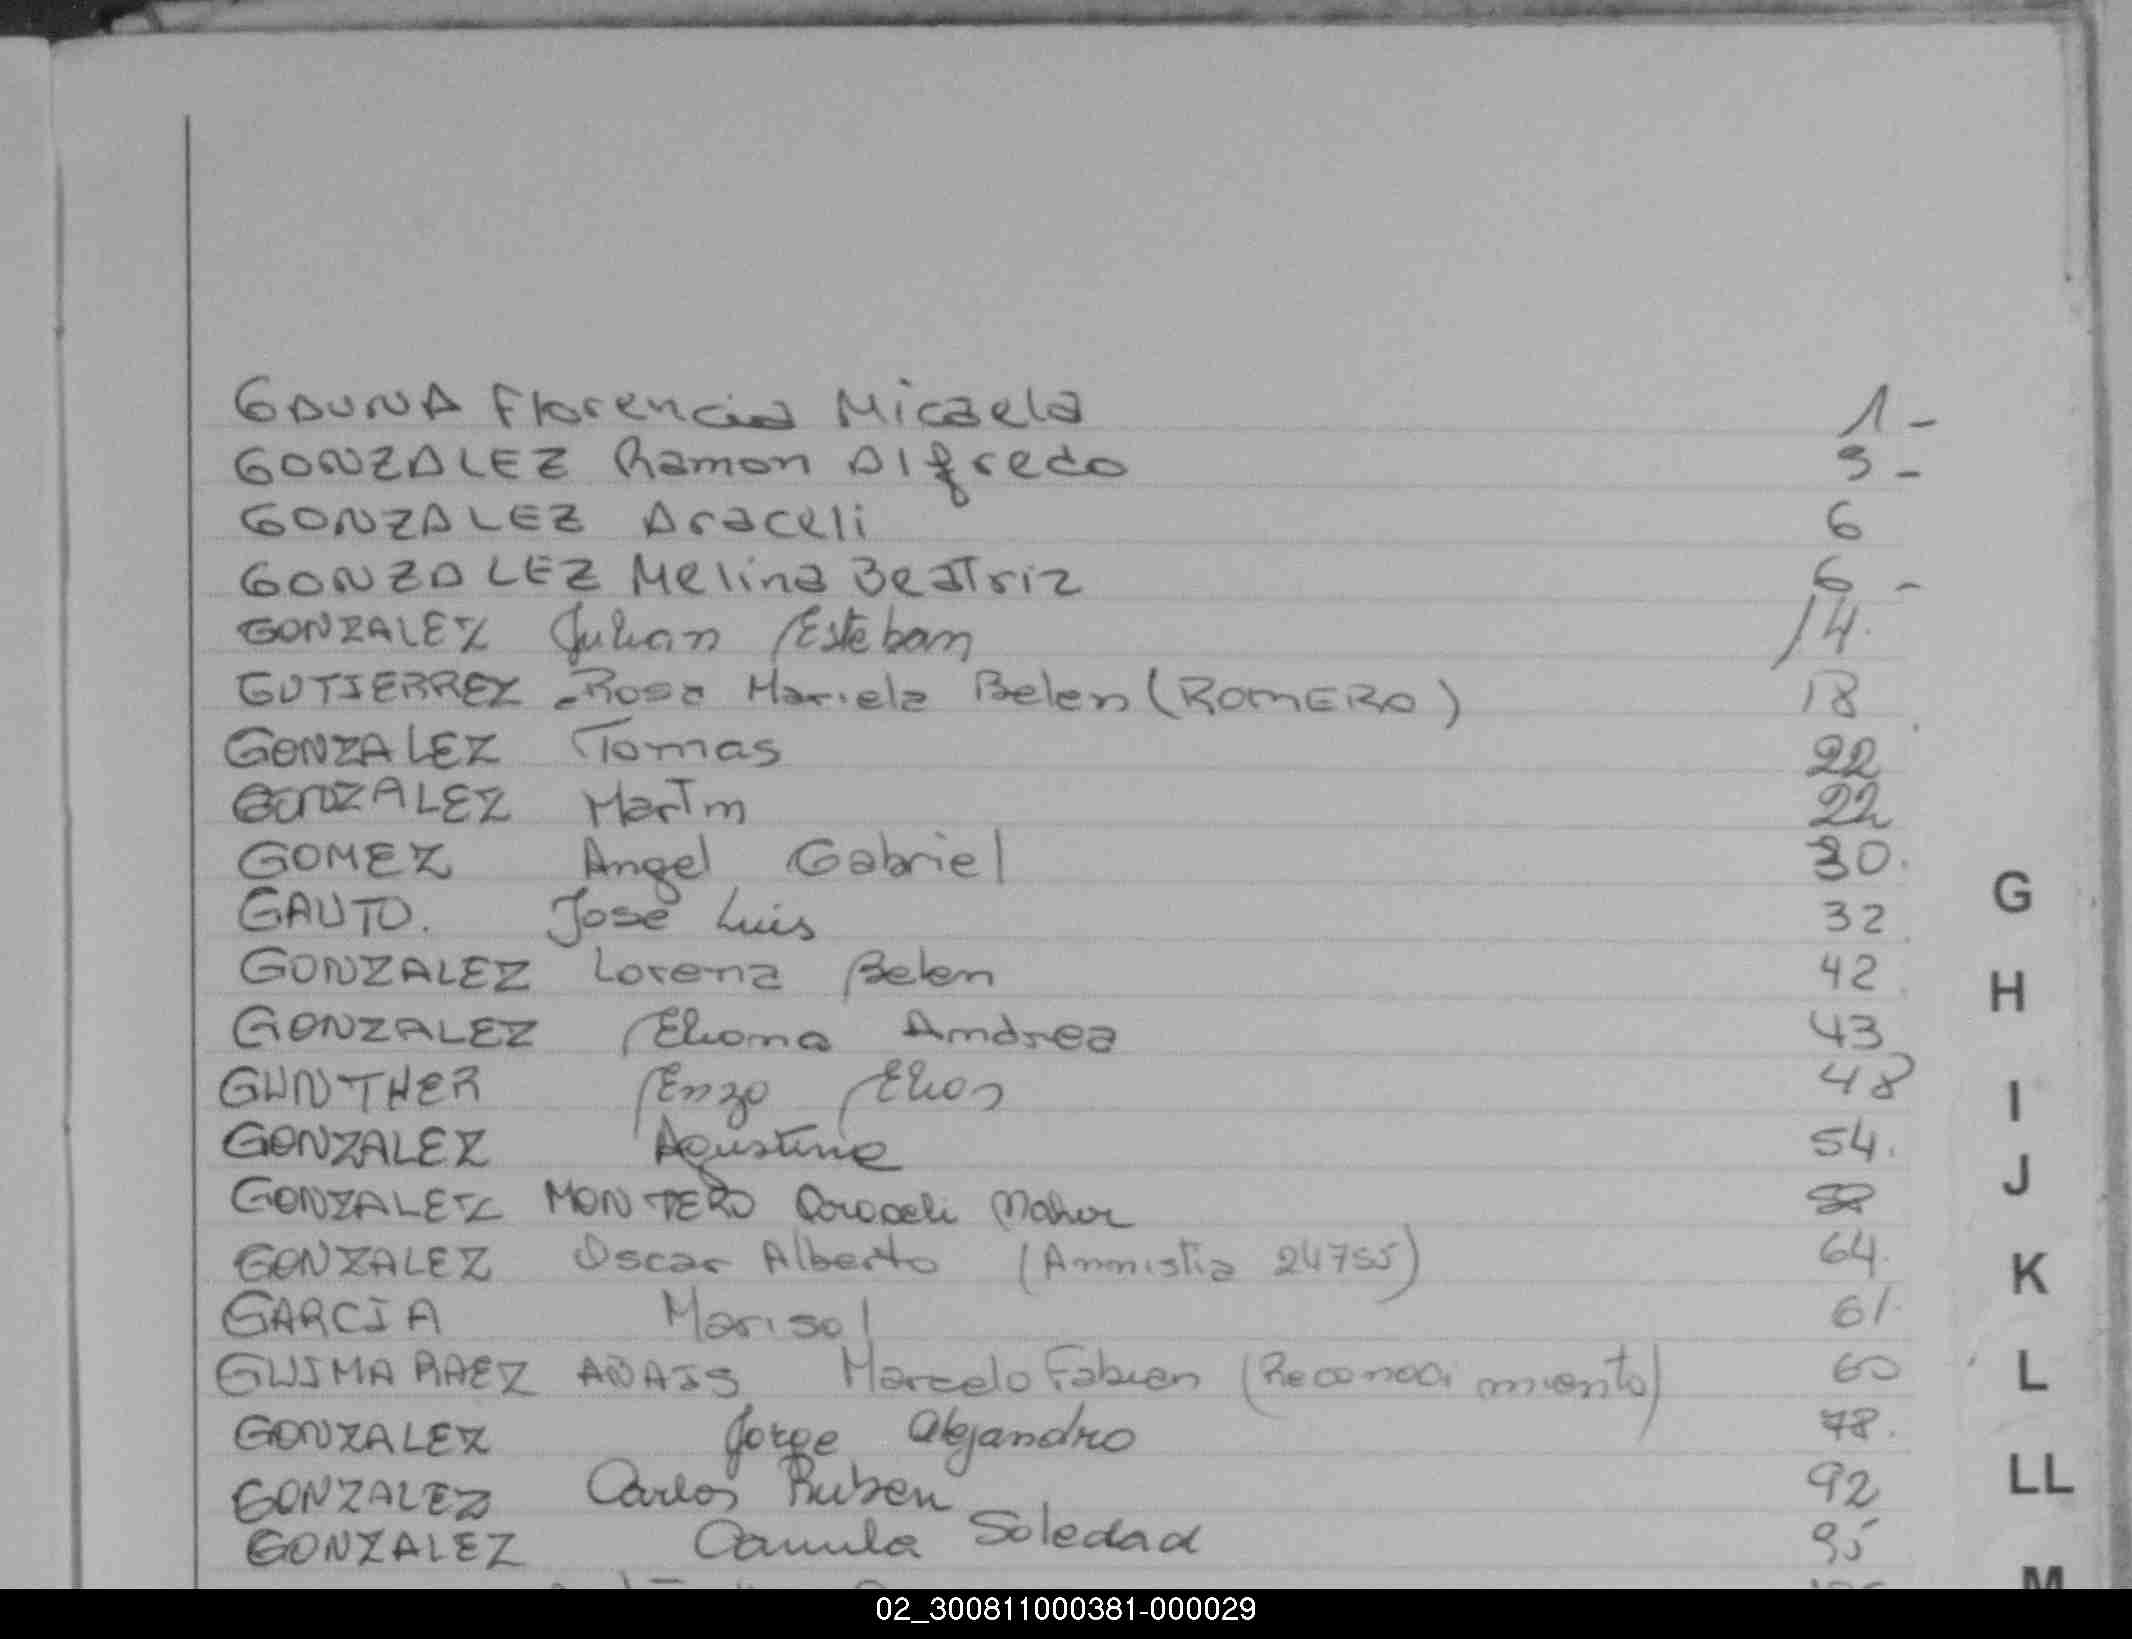 GAUNA Florencia Micaela 1 -
GONZALEZ Ramon Alfredo 3 -
GONZALEZ Araceli 6
GONZALEZ Melina Beatriz 6 -
GONZALEZ Julian Esteban 14.
GUTIERREZ Rosa Mariela Belen (ROMERO) 18
GONZALEZ Tomas 22
GONZALEZ Martin 22
GOMEZ Angel Gabriel 30.
GAUTO. Jose Luis 32
GONZALEZ Lorena Belen 42
GONZALEZ Eliana Andrea 43
GUNTHER Enzo Elias 48
GONZALEZ Agustina 54.
GONZALEZ MONTERO Araceli
GONZALEZ Oscar Alberto (Amnistia 24755) 64.
GARCIA Marisol 61.
GUIMARAEZ Marcelo Fabian (Reconocimiento) 60
GONZALEZ Jorge Alejandro 78.
GONZALEZ Carlos Ruben 92
GONZALEZ Camila Soledad 95
G
H
I
J
K
L
LL
M
02_300811000381-000029